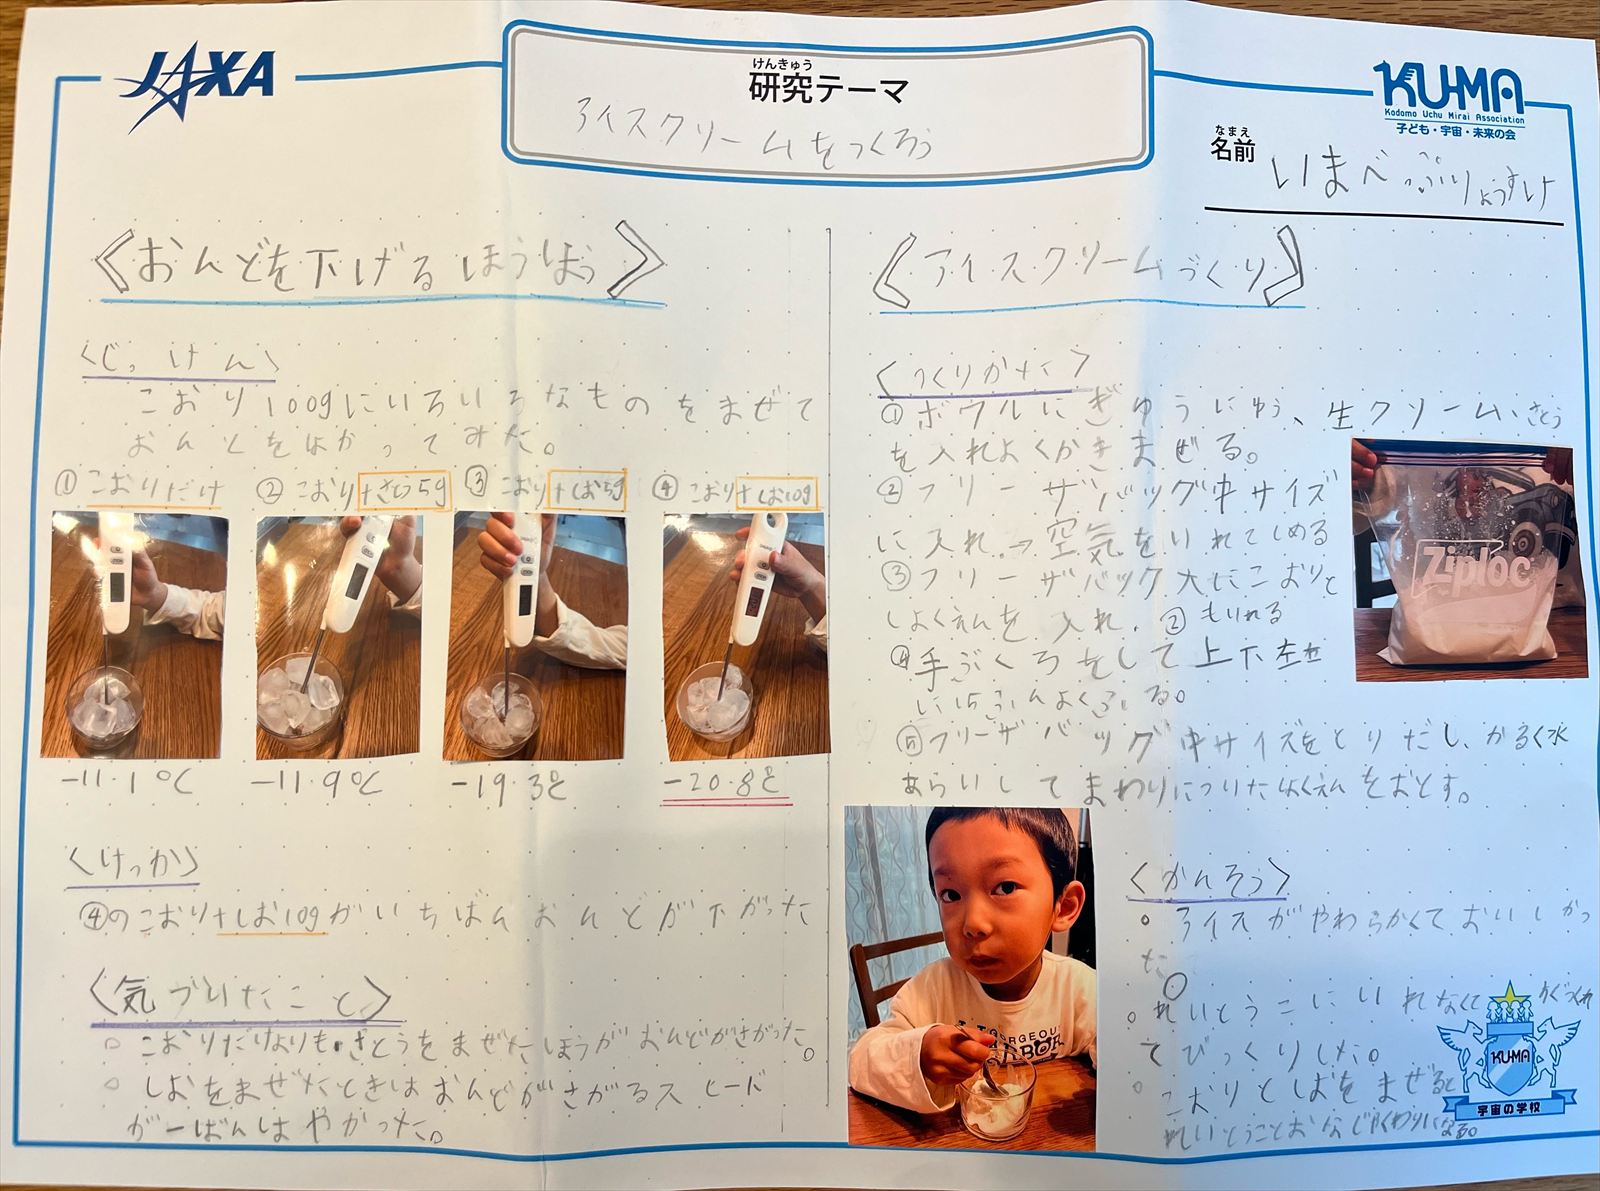 JAXA
けんきゅう
研究テーマ
アイスクリームをつくろう
KU-MA
Kodomo Uchu Mirai Association
子ども・宇宙・未来の会
なまえ
名前
いまべっぷりょうすけ
《おんどを下げるほうほう》
〈じっけん〉
こおり100gにいろいろなものをまぜて
おんどをはかってみた。
①こおりだけ
②こおり+さとう5g
③こおり+しお5g
④こおり+しお10g
-11.1℃
-11.9℃
-19.3℃
-20.8℃
〈けっか〉
④のこおり+しお10gがいちばんおんどが下がった
〈気づいたこと〉
○こおりだけよりも、さとうをまぜたほうがおんどがさがった。
○しおをまぜたときはおんどがさがるスピード
が一ばんはやかった。
《アイスクリームづくり》
〈つくりかた〉
①ボウルにぎゅうにゅう、生クリーム、さとう
を入れよくかきまぜる。
②フリーザバッグ中サイズ
に入れ→空気をいれてしめる
③フリーザバック大にこおりと
しょくえんを入れ、②もいれる
④手ぶくろをして上下左右
に15ふんよくふる。
⑤フリーザバッグ中サイズをとりだし、かるく水
あらいしてまわりについたしょくえんをおとす。
Ziploc
〈かんそう〉
○アイスがやわらかくておいしかっ
た。
○れいとうこにいれなくて
てびっくりした。
○こおりとしおをまぜると
れいとうことおなじやくわりになる。
GORGEOU
KU-MA
宇宙の学校